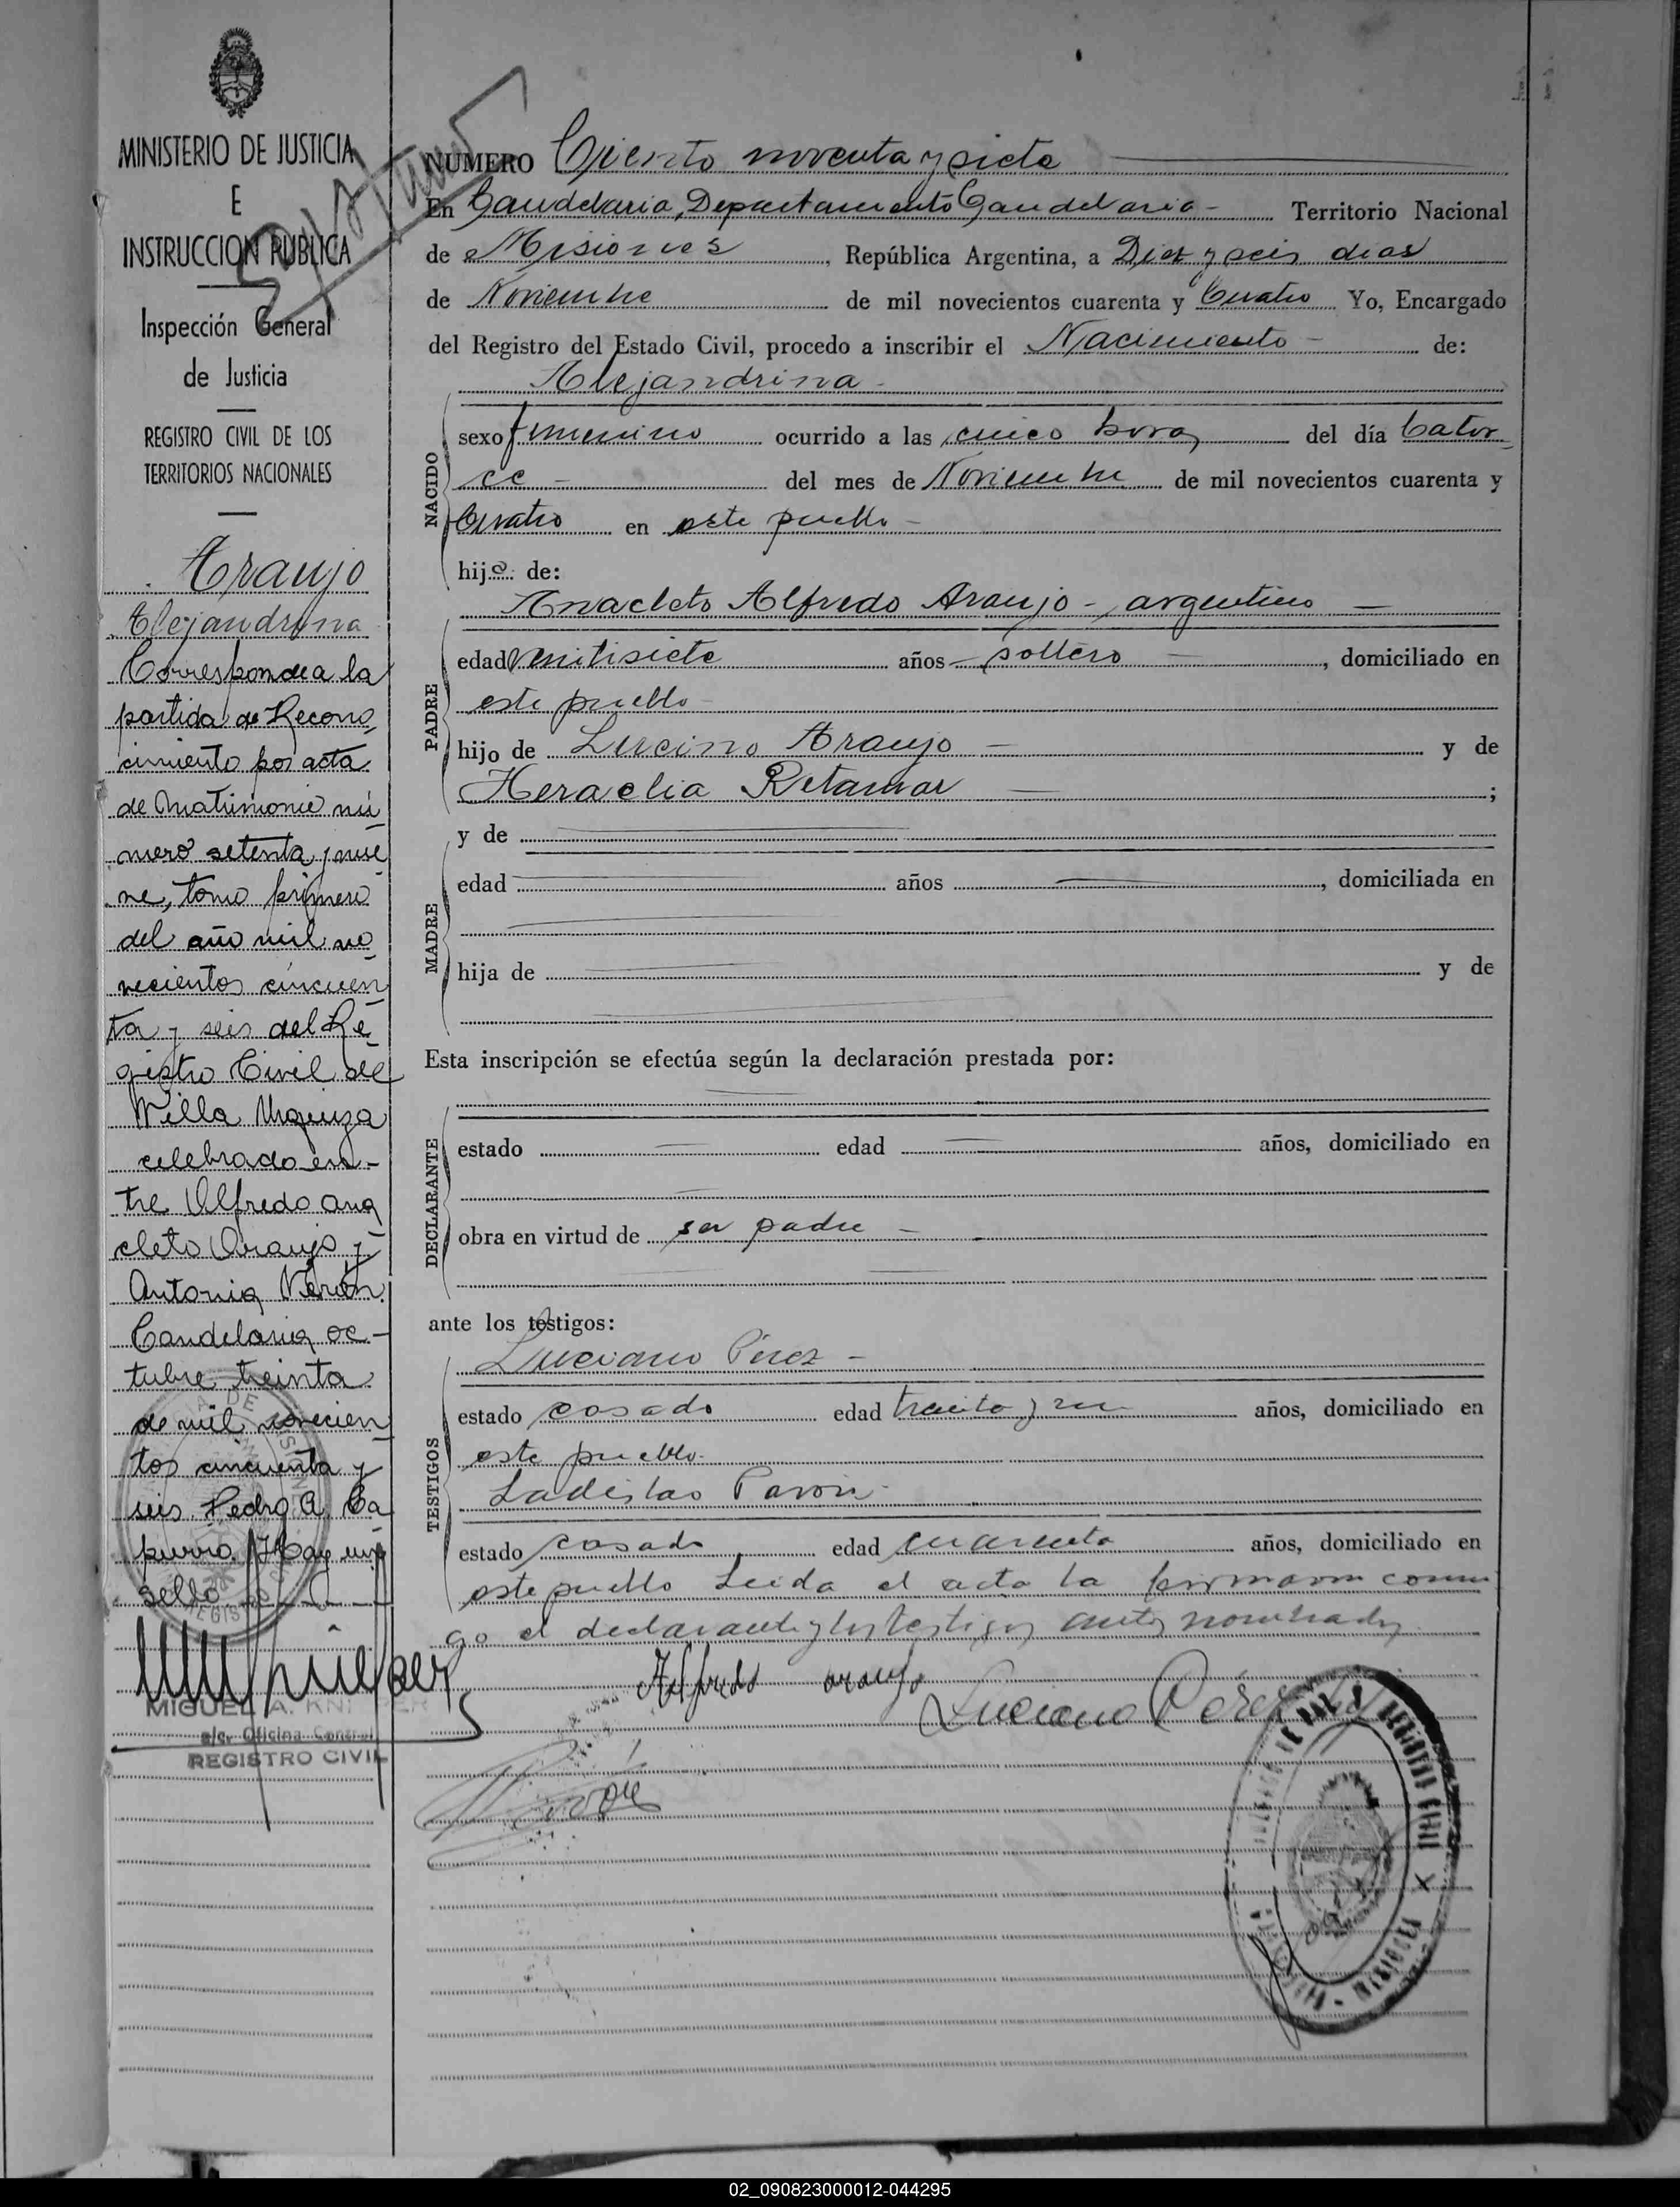 MINISTERIO DE JUSTICIA
E
INSTRUCCION PUBLICA
Inspección General
de Justicia
REGISTRO CIVIL DE LOS
TERRITORIOS NACIONALES
Araujo
Alejandrina
Corresponde a la
partida de Recono
cimiento por acta
de Matrimonio nú
mero setenta y nue
ve, tomo primero
del año mil no
vecientos cincuen
ta y seis del Re
gistro Civil de
Villa Urquiza
celebrado en-
tre Alfredo Ana
cleto Araujo y
Antonia Verón
Candelaria oc-
tubre treinta
de mil novecien
tos cincuenta y
seis. Pedro A. Ca
purro. Hay un
sello
MIGUEL A.
a/c. Oficina Central
REGISTRO CIVIL
NUMERO Ciento noventa y siete
En Candelaria, Departamento Candelaria - Territorio Nacional
de Misiones, República Argentina, a Diez y seis dias
de Noviembre de mil novecientos cuarenta y Cuatro Yo, Encargado
del Registro del Estado Civil, procedo a inscribir el Nacimiento - de:
Alejandrina -
NACIDO
sexo femenino ocurrido a las cinco horas del día Cator-
ce - del mes de Noviembre de mil novecientos cuarenta y
Cuatro en este pueblo -
hija de:
Anacleto Alfredo Araujo - argentino -
PADRE
edad Veintisiete años - soltero -, domiciliado en
este pueblo -
hijo de Lucino Araujo - y de
Heraclia Retamar - ;
y de
MADRE
edad años, domiciliada en
hija de y de
Esta inscripción se efectúa según la declaración prestada por:
DECLARANTE
estado edad años, domiciliado en
obra en virtud de ser padre -
ante los testigos:
Luciano Pérez -
TESTIGOS
estado casado edad treinta y un años, domiciliado en
este pueblo.
Ladislao Pavón -
estado casado edad cuarenta años, domiciliado en
este pueblo Leida el acta la firmaron conmi
go el declarante y los testigos antes nombrados
Alfredo araujo
Luciano Pérez
02_090823000012-044295